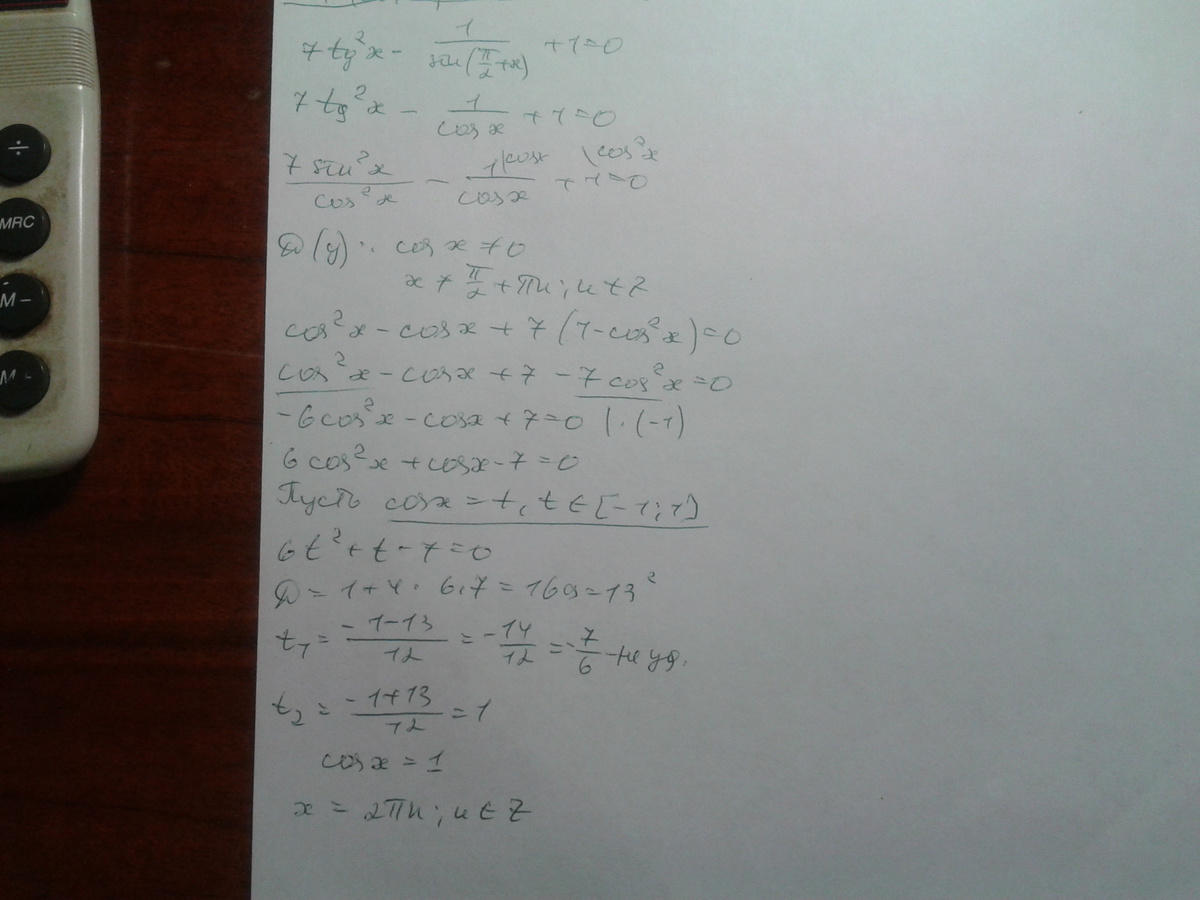 ÷
MRC
M –
M -
7 tg²x - 1/sin(π/2 + x) + 1 = 0
7 tg²x - 1/cos x + 1 = 0
7 sin²x/cos²x - 1\cosx/cos x + 1\cos²x = 0
D(y): cos x ≠ 0
x ≠ π/2 + πn; n ∈ Z
cos²x - cos x + 7(1 - cos²x) = 0
cos²x - cos x + 7 - 7 cos²x = 0
-6 cos²x - cos x + 7 = 0 |·(-1)
6 cos²x + cos x - 7 = 0
Пусть cos x = t, t ∈ [-1; 1]
6t² + t - 7 = 0
D = 1 + 4 · 6 · 7 = 169 = 13²
t₁ = (-1-13)/12 = -14/12 = -7/6 - не уд.
t₂ = (-1+13)/12 = 1
cos x = 1
x = 2πn; n ∈ Z